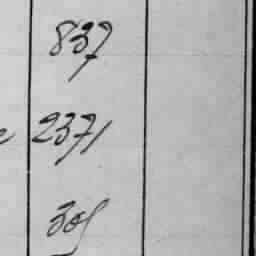 837
2371
305